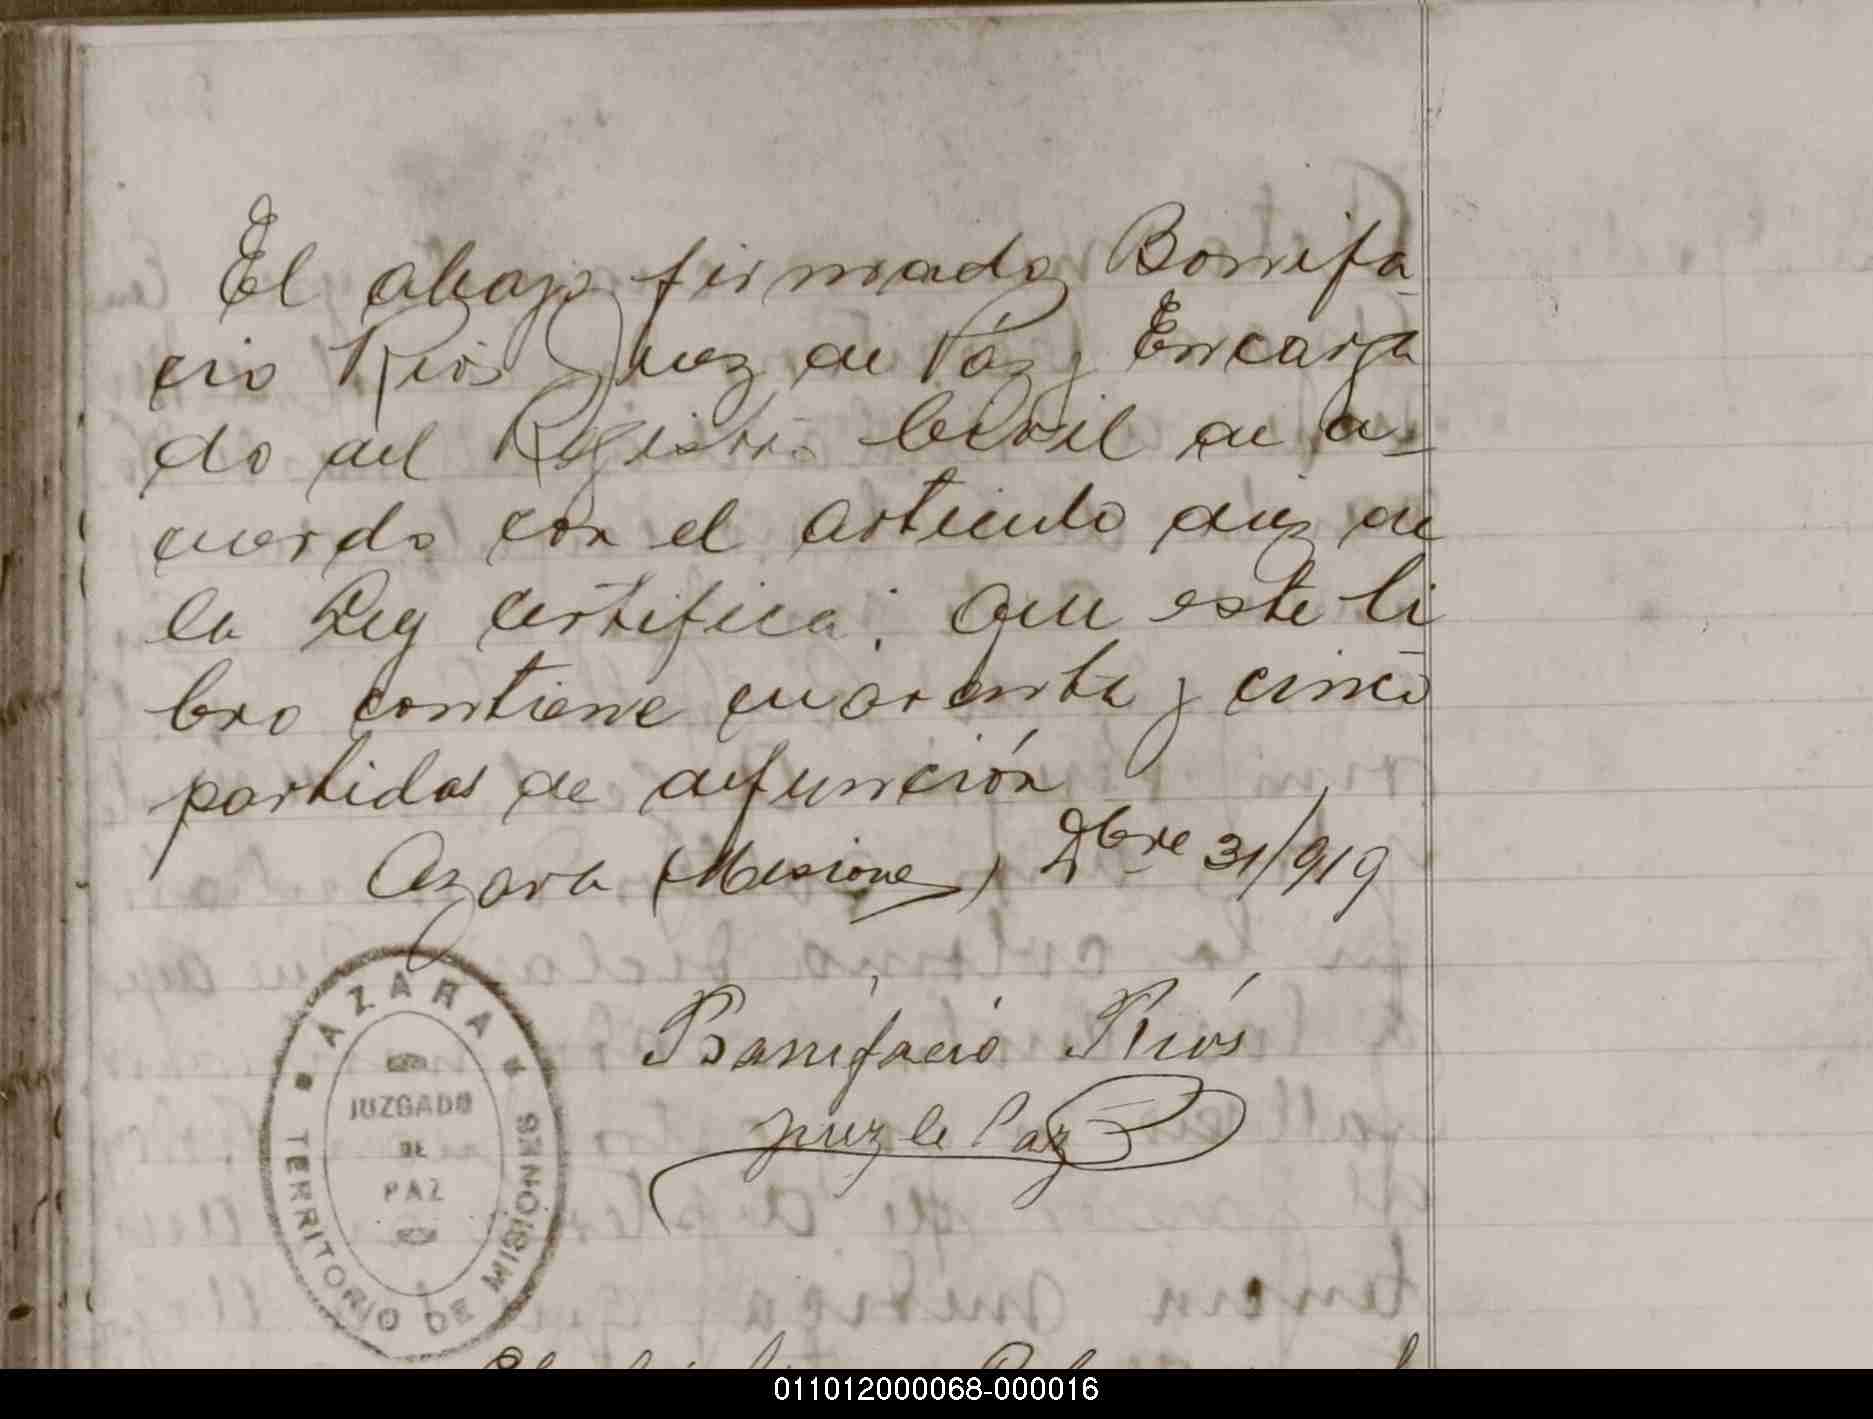 El abajo firmado Bonifa
cio Rios Juez de Paz y Encarga
do del Registro Civil de a-
cuerdo con el articulo diez de
la Ley certifica: Que este li
bro contiene cuarenta y cinco
partidas de defunción
Azara (Misiones) Dbre 31/919
Bonifacio Ríos
juez de Paz
AZARA
JUZGADO
DE
PAZ
TERRITORIO DE MISIONES
011012000068-000016